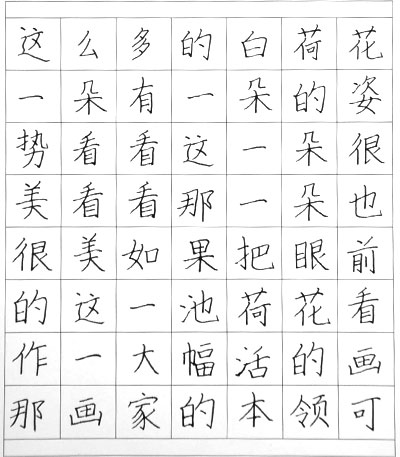 这么多的白荷花
一朵有一朵的姿
势看看这一朵很
美看看那一朵也
很美如果把眼前
的这一池荷花看
作一大幅活的画
那画家的本领可